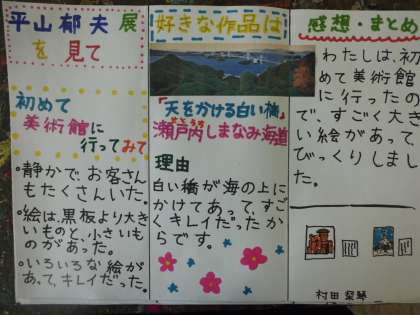 平山郁夫展
を見て
初めて
美術館に
行ってみて
・静かで、お客さん
もたくさんいた。
・絵は、黒板より大き
いものと、小さいも
のがあった。
・いろいろな絵が
あって、キレイだった。
好きな作品は
「天をかける白い橋」
瀬戸内しまなみ海道
理由
白い橋が海の上に
かけてあって、すご
くキレイだったか
らです。
感想・まとめ
わたしは、初
めて美術館
に行ったの
で、すごく大き
い絵があって、
びっくりしまし
た。
村田